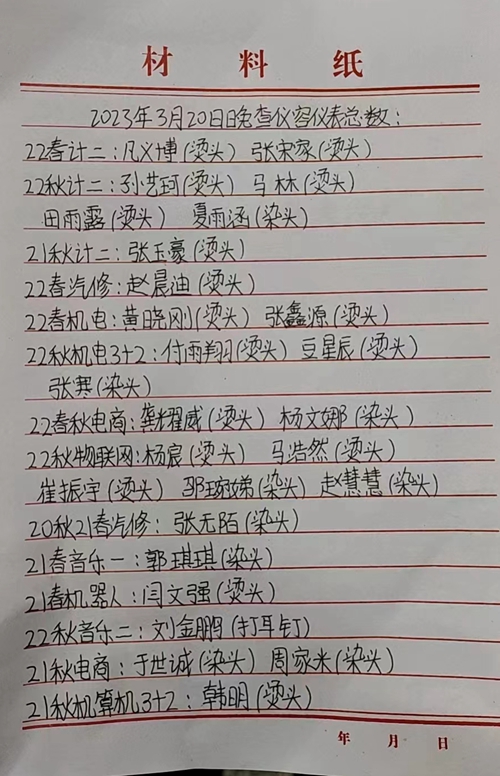 材料纸
2023年3月20日晚查仪容仪表总数：
22春计二：凡义博(烫头) 张宋家(烫头)
22秋计二：孙艺珂(烫头) 马林(烫头)
田雨露(烫头) 夏雨涵(染头)
21秋计二：张玉豪(烫头)
22春汽修：赵晨迪(烫头)
22春机电：黄晓刚(烫头) 张鑫源(烫头)
22秋机电3+2：付雨翔(烫头) 豆星辰(烫头)
张寒(染头)
22春秋电商：龚耀威(烫头) 杨文娜(染头)
22秋物联网：杨宸(烫头) 马浩然(烫头)
崔振宇(烫头) (染头) 赵慧慧(染头)
20秋21春汽修：张无陌(染头)
21春音乐一：郭琪琪(染头)
21春机器人：闫文强(烫头)
22秋音乐二：刘金鹏(打耳钉)
21秋电商：于世诚(染头) 周家米(染头)
21秋机算机3+2：韩明(烫头)
年 月 日